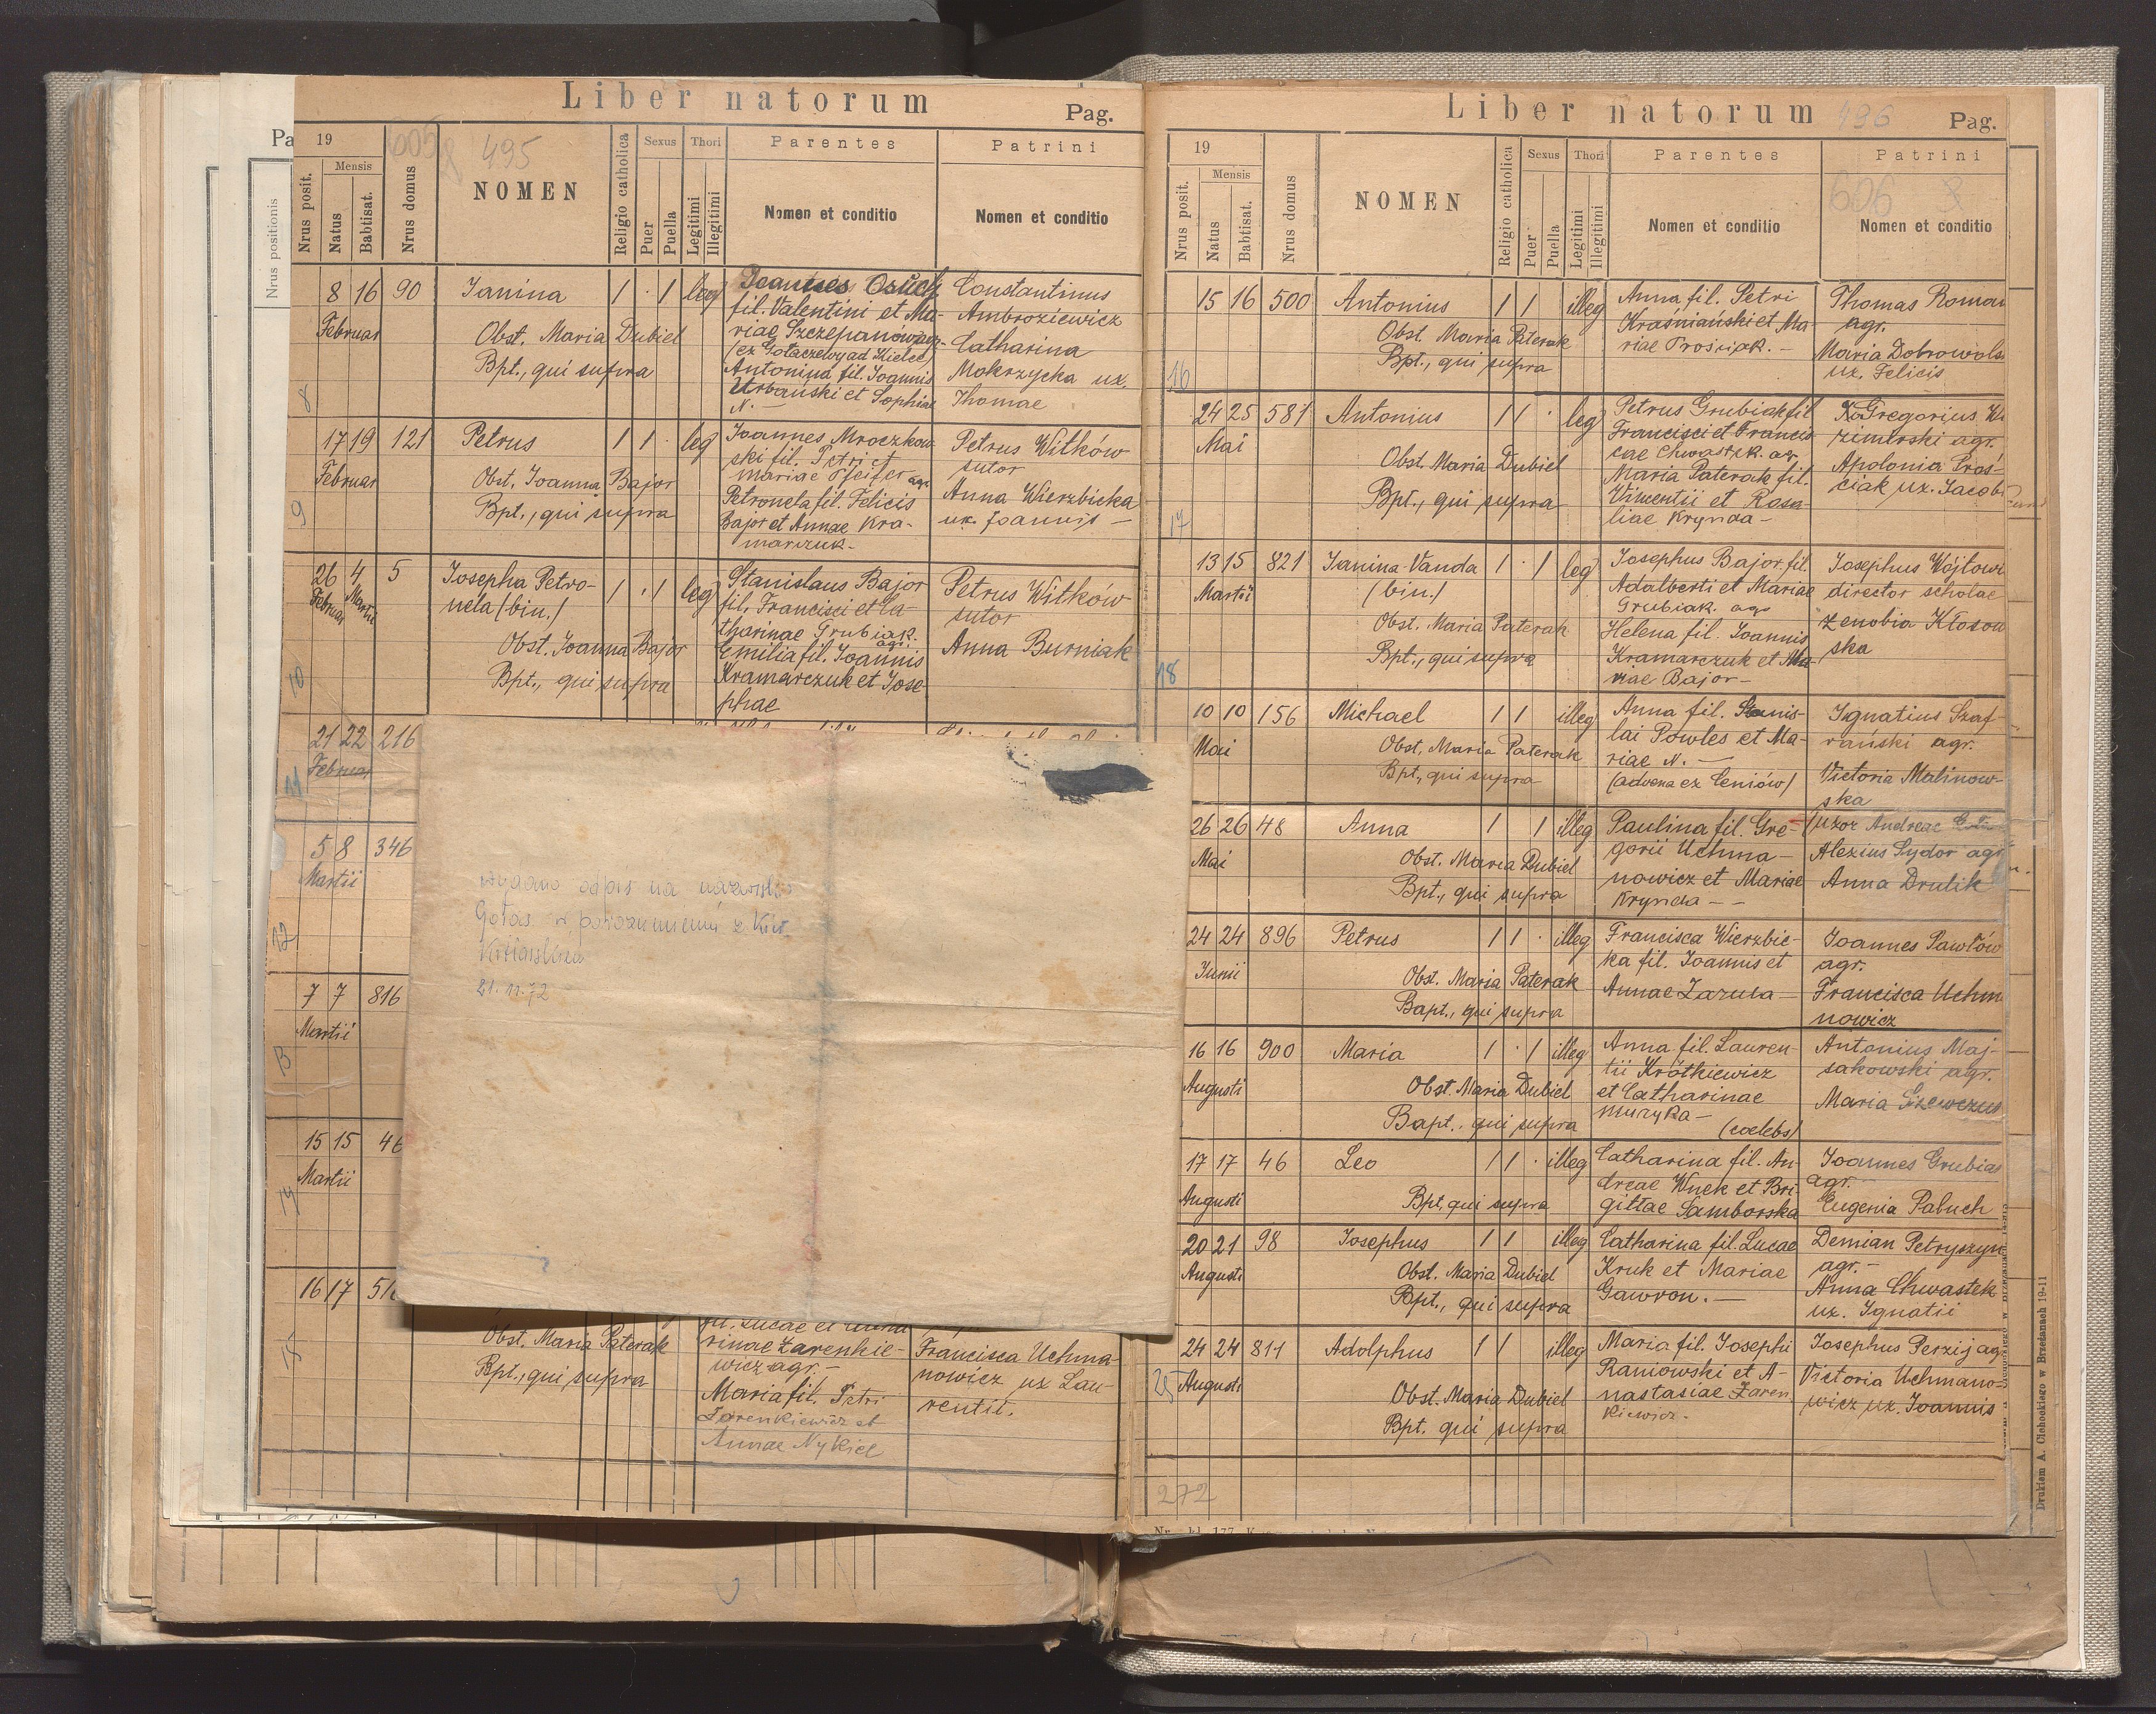 Liber natorum
Pag.
19
605
8
495
Nrus posit.
Mensis
Natus
Babtisat.
Nrus domus
NOMEN
Religio catholica
Sexus
Puer
Puella
Thori
Legitimi
Illegitimi
Parentes
Nomen et conditio
Patrini
Nomen et conditio
Pa
Nrus positionis
8
8 16 90 Janina 1 · 1 leg
Februar
Obst. Maria Dubiel
Bpt., qui supra
Joannes Osuch
fil. Valentini et Ma-
riae Szczepanów agr-
(ex Gołaczewy ad Kielce)
Antonina fil. Joannis
Urbański et Sophiae
N. —
Constantinus
Ambroziewicz
Catharina
Mokrzycka ux.
Thomae
9
17 19 121 Petrus 1 1 · leg
Februar
Obst. Joanna Bajor
Bpt., qui supra
Joannes Mroczkow-
ski fil. Petri et
Mariae Pfeifer agr.
Petronela fil. Felicis
Bajor et Annae Kra-
marczuk.
Petrus Witków
sutor
Anna Wierzbicka
ux. Joannis —
10
26 4 5 Josepha Petro- 1 · 1 leg
Februar Martii
nela (bin.)
Obst. Joanna Bajor
Bpt., qui supra
Stanislaus Bajor
fil. Francisci et Ca-
tharinae Grubiak.
agr.
Emilia fil. Joannis
Kramarczuk et Jose-
phae
Petrus Witków
sutor
Anna Burniak
11
21 22 216
Februar
12
5 8 346
Martii
13
7 7 816
Martii
14
15 15 46
Martii
15
16 17 51
Obst. Maria Paterak
Bpt., qui supra
fil. Lucae et
rinae Zarenkie-
wicz agr. —
Maria fil. Petri
Zarenkiewicz et
Annae Nykiel
Francisca Uchma-
nowicz ux Lau-
rentii.
wydano odpis na nazwisko
Gołas w porozumieniu z
21.11.72
Liber natorum
496
Pag.
19
Nrus posit.
Mensis
Natus
Babtisat.
Nrus domus
NOMEN
Religio catholica
Sexus
Puer
Puella
Thori
Legitimi
Illegitimi
Parentes
Nomen et conditio
Patrini
606
8
Nomen et conditio
16
15 16 500 Antonius 1 1 illeg
Obst. Maria Paterak
Bpt., qui supra
Anna fil. Petri
Kraśniański et Ma-
riae Prościak. —
Thomas Roman
agr.
Maria Dobrowols
ux. Felicis
17
24 25 581 Antonius 1 1 · leg
Mai
Obst. Maria Dubiel
Bpt., qui supra
Petrus Grubiak fil
Francisci et Francis
cae Chwastek. agr
Maria Paterak fil.
Vincentii et Rosa-
liae Krynda —
Gregorius
zimirski agr.
Apolonia Proś-
ciak ux. Jacobi
18
13 15 821 Janina Vanda 1 · 1 leg
Martii
(bin.)
Obst. Maria Paterak
Bpt., qui supra
Josephus Bajor fil.
Adalberti et Mariae
Grubiak. agr
Helena fil. Joannis
Kramarczuk et Ma-
riae Bajor —
Josephus Wójtowi
director scholae
Zenobia Kłosow
ska
10 10 156 Michael 1 1 illeg
Mai
Obst. Maria Paterak
Bpt., qui supra
Anna fil. Stanis-
lai Powles et Ma-
riae N. —
(advena ex Ceniów)
Ignatius Szaf-
rański agr.
Victoria Malinow-
ska
(uxor Andreae
26 26 48 Anna 1 1 illeg
Mai
Obst. Maria Dubiel
Bpt., qui supra
Paulina fil. Gre-
gorii Uchma-
nowicz et Mariae
Krynda — —
Alexius Sydor agr
Anna Drulik
24 24 896 Petrus 1 1 · illeg
Junii
Obst. Maria Paterak
Bapt., qui supra
Francisca Wierzbic-
ka fil. Joannis et
Annae Zazula —
Joannes Pawłów
agr.
Francisca Uchma
nowicz
16 16 900 Maria 1 · 1 illeg
Augusti
Obst. Maria Dubiel
Bapt., qui supra
Anna fil. Lauren-
tii Krótkiewicz
et Catharinae
Muzyka —
(coelebs)
Antonius Maj-
sakowski agr.
Maria Szewczuk
17 17 46 Leo 1 1 · illeg
Augusti
Bpt, qui supra
Catharina fil. An-
dreae Wnek et Bri-
gittae Samborska
Joannes Grubiak
agr.
Eugenia Pabuch
20 21 98 Josephus 1 1 illeg
Augusti
Obst. Maria Dubiel
Bpt., qui supra
Catharina fil. Lucae
Kruk et Mariae
Gawron. —
Demian Petryszyn
agr. —
Anna Chwastek
ux. Ignatii
25
24 24 811 Adolphus 1 1 illeg
Augusti
Obst. Maria Dubiel
Bpt. qui supra
Maria fil. Josephi
Raniowski et A-
nastasiae Zaren
kiewicz.
Josephus Perzij ag
Victoria Uchmano-
wicz ux. Joannis
272
Drukiem A. Cichockiego w Brzeżanach 19-11